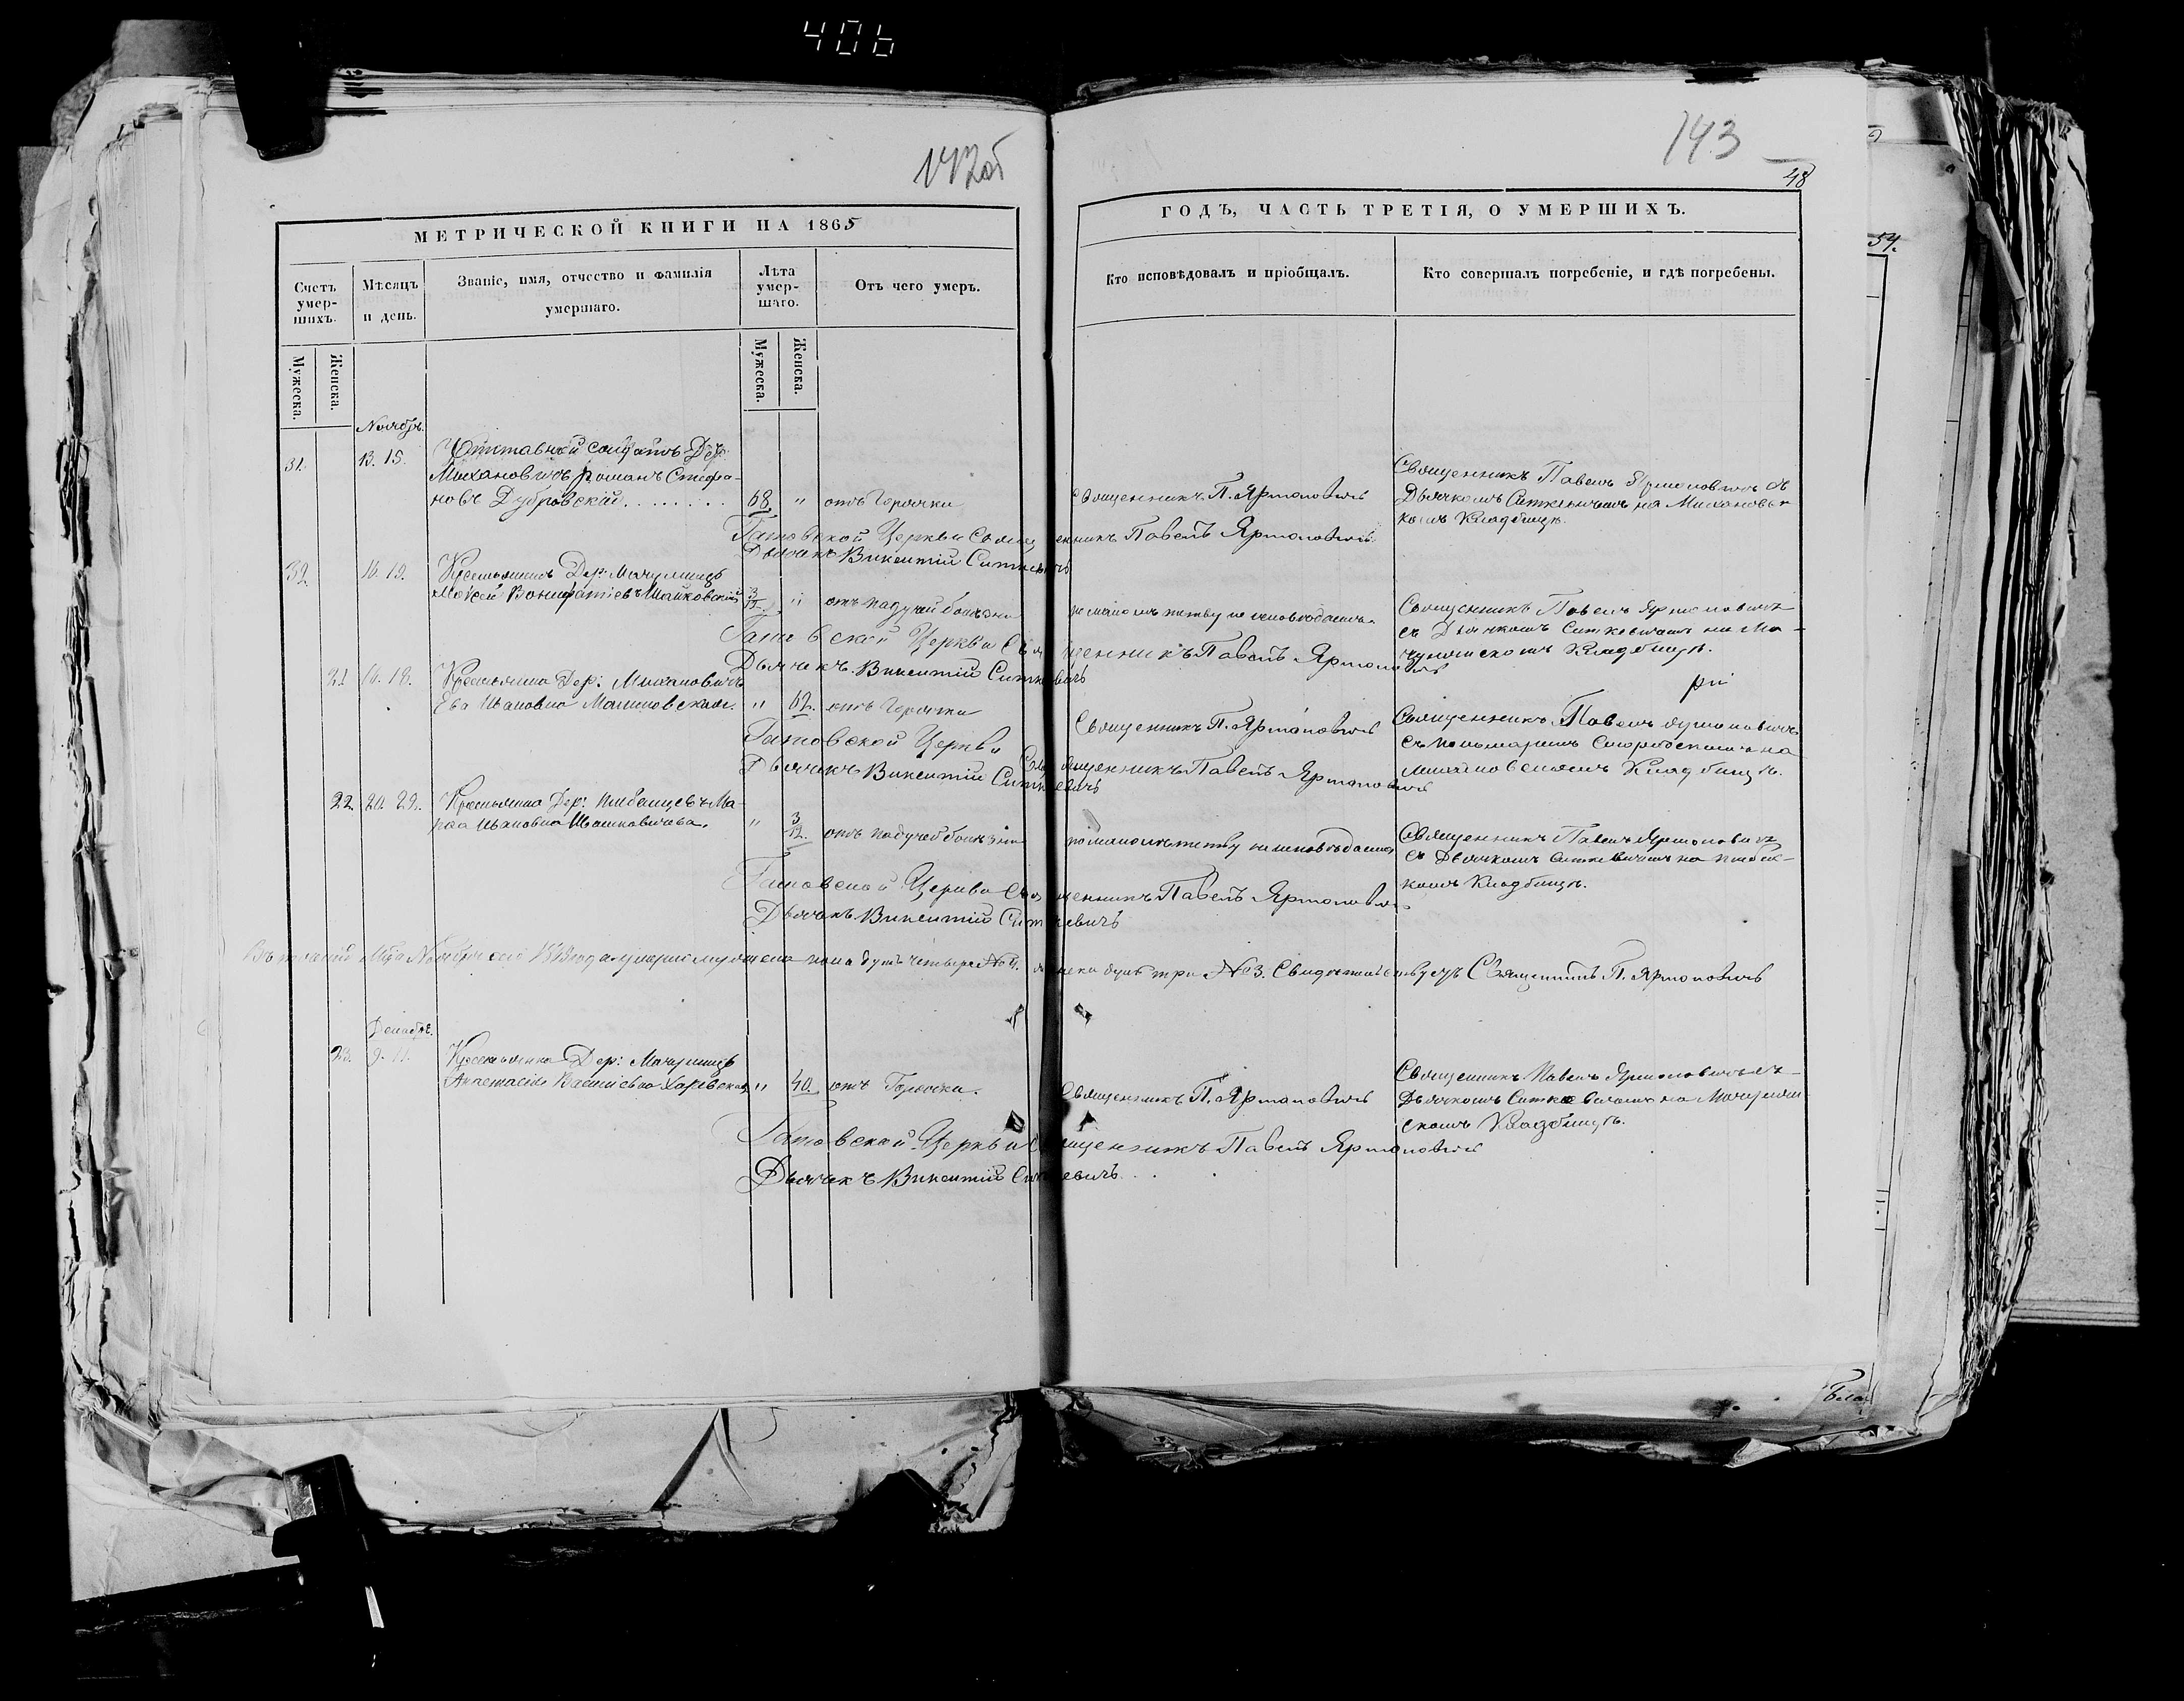 406
142об
143
48
54.
МЕТРИЧЕСКОЙ КНИГИ НА 1865
ГОДЪ, ЧАСТЬ ТРЕТІЯ, О УМЕРШИХЪ.
Счетъ умер-шихъ.
Мѣсяцъ и день.
Званіе, имя, отчество и фамилія умершаго.
Лѣта умер-шаго.
Отъ чего умеръ.
Кто исповѣдовалъ и пріобщалъ.
Кто совершалъ погребеніе, и гдѣ погребены.
Мужеска.
Женска.
Мужеска.
Женска.
Ноябрь.
31. 13. 15. солдатъ Дер:
Михановичь Романъ Стефа-
новъ Дубровскій 68. " отъ Горячки
Священникъ П. Ярмоловичь
Священникъ Павелъ Ярмоловичь съ
Дьячкомъ Ситкевичемъ на Михановс-
комъ Кладбищѣ.
Гатовской Церкви Священникъ Павелъ Ярмоловичь
Дьячекъ Викентій Ситкевичъ
32. 16. 19. Крестьянинъ Дер: Мачулищъ
Моѵсей Вонифатіевъ " отъ падучей болѣзни
Священникъ Павелъ Ярмоловичь
съ Дьячкомъ Ситкевичемъ на Ма-
чулискомъ Кладбищѣ.
Гатовской Церкви Священникъ Павелъ Ярмоловичь
Дьячекъ Викентій Ситкевичъ
21 16. 18. Крестьянка Дер: Михановичь
Ева Ивановна Малиновская. " 62. отъ Горячки
Священникъ П. Ярмоловичь
Священникъ Павелъ Ярмоловичь
съ пономаремъ на
Михановскомъ Кладбищѣ.
Гатовской Церкви Священникъ Павелъ Ярмоловичь
Дьячекъ Викентій Ситкевичъ
22. 20. 22. Крестьянка Дер: Ма-
Ивановна " 3/12. отъ падучей болѣзни
по малолѣтству не исповѣдалась
Священникъ Павелъ Ярмоловичь
съ Дьячкомъ Ситкевичемъ на
комъ Кладбищѣ.
Гатовской Церкви Священникъ Павелъ Ярмоловичь
Дьячекъ Викентій Ситкевичъ
Въ теченіи Мца Ноября сего года умерло мужеска пола душъ четыре №4. женска душъ три №3. Свидѣтельствуетъ Священникъ П. Ярмоловичь
Декабрь.
23. 9. 11. Крестьянка Дер: Мачулищъ
Анастасія Василіевна " 40. отъ Горячки.
Священникъ П. Ярмоловичь
Священникъ Павелъ Ярмоловичь съ
Дьячкомъ Ситкевичемъ на Мачулин
скомъ Кладбищѣ.
Гатовской Церкви Священникъ Павелъ Ярмоловичь
Дьячекъ Викентій Ситкевичъ